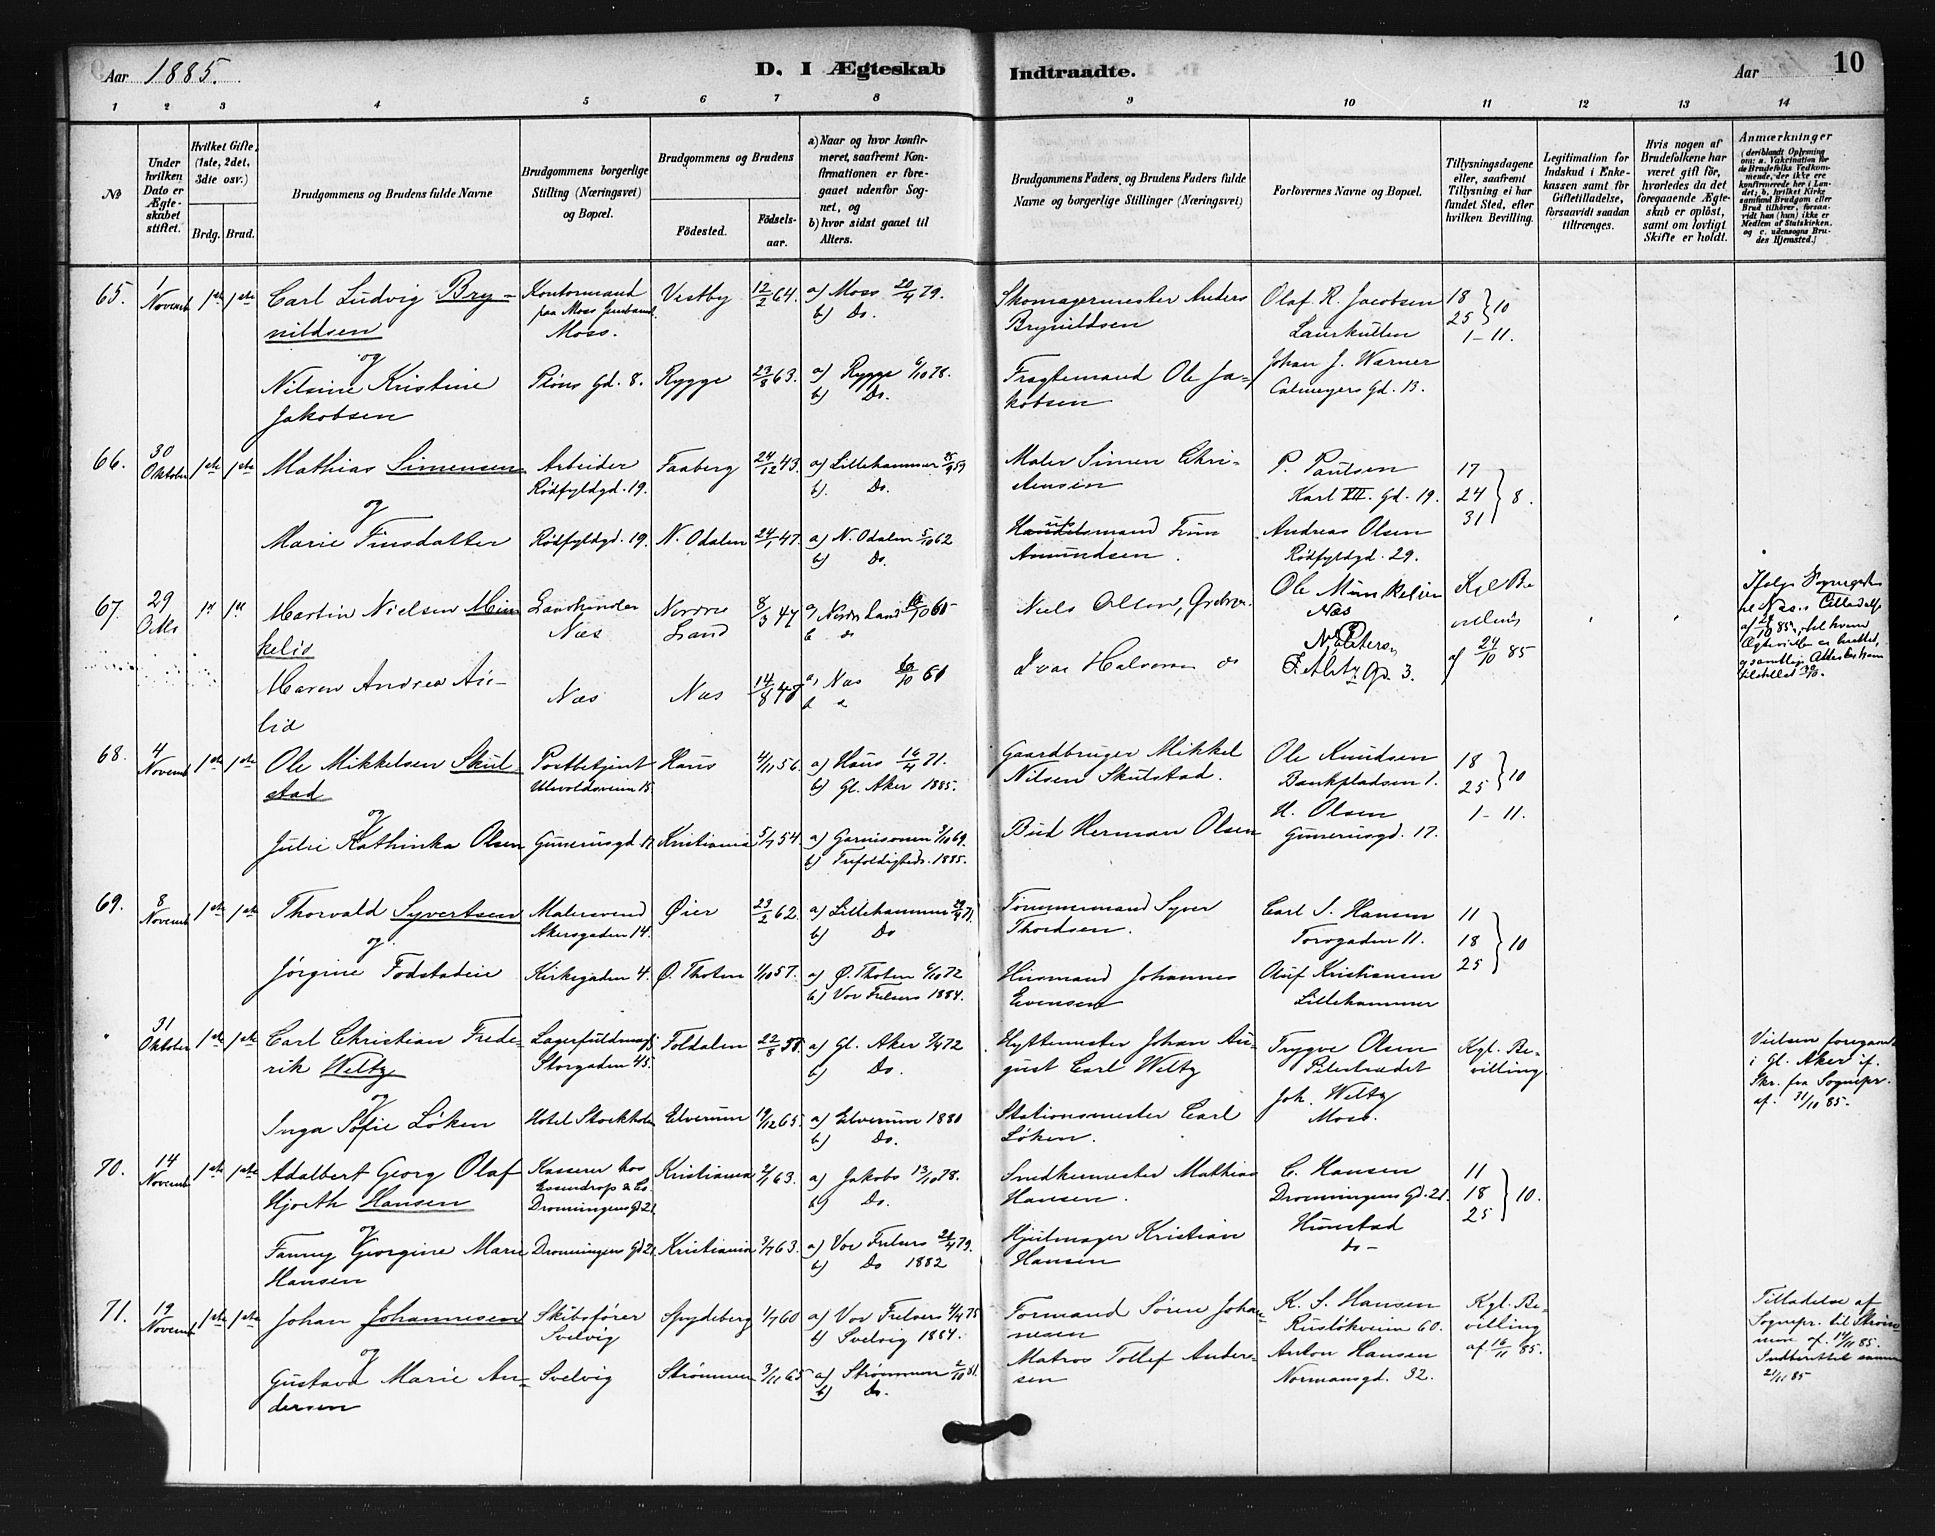 Aar 1885.
D. I Ægteskab Indtraadte.
Aar
10
1 2 3 4 5 6 7 8 9 10 11 12 13 14
No
Under hvilken Dato er Ægteskabet stiftet.
Hvilket Gifte, (1ste, 2det, 3die osv.)
Brdg. Brud.
Brudgommens og Brudens fulde Navne
Brudgommens borgerlige Stilling (Næringsvei) og Bopæl.
Brudgommens og Brudens
Födested.
Födsels-aar.
a) Naar og hvor konfirmeret, saafremt Konfirmationen er foregaaet udenfor Sognet, og
b) hvor sidst gaaet til Alters.
Brudgommens Faders og Brudens Faders fulde Navne og borgerlige Stillinger (Næringsvei)
Forlovernes Navne og Bopæl.
Tillysningsdagene eller, saafremt Tillysning ei har fundet Sted, efter hvilken Bevilling.
Legitimation for Indskud i Enkekassen samt for Giftetilladelse, forsaavidt saadan tiltrænges.
Hvis nogen af Brudefolkene har været gift før, hvorledes da det foregaaende Ægteskab er oplöst, samt om lovligt Skifte er holdt.
Anmærkninger
65. 1 Novemb 1ste 1ste
Carl Ludvig Brynildsen
Kontormand paa Moss Jernbanest. Moss.
Vestby 12/2 64.
a) Moss 20/4 79.
b) Do.
Skomagermester Anders Brynildsen
Olaf R. Jacobsen
Laurkullen
18 25 } 10
1-11.
og
Nilsine Kristine Jakobsen
Pløns Gd. 8.
Rygge 23/8 63.
a) Rygge 6/10 78.
b) Do.
Fragtemand Ole Jakobsen
Johan J. Warner
Calmeyers Gd. 13.
66. 30 Oktober 1ste 1ste
Mathias Simensen
Arbeider
Rødfyldgd. 19.
Faaberg 24/12 43.
a) Lillehammer 25/9 59
b). Do.
Maler Simen Christensen
P. Paulsen
Karl XII. Gd. 19.
17 24 31 } 8.
og
Marie Finsdatter
Rødfyldgd. 19.
N. Odalen 24/1 47.
a) N. Odalen 5/10 62
b) Do.
Husmand Finn Amundsen.
Andreas Olsen
Rødfyldgd. 29.
67. 29 Octb
Martin Nielsen Minkelid
Landhandler
Næs
Nordre Land 8/3 47
a, Nordre Land
b do
Niels Olson,
Ole Munkelien
Næs
Kgl Be
af 24/10 85
Maren Andrea Aulid
Næs
Næs 14/8
a, Næs
Ivar Halvorsen do
Gd 3.
68. 4 Novemb 1ste 1ste
Ole Mikkelsen Skulstad
Postbetjent
Ulevoldsveien 15.
Haus 4/11 56.
a) Haus 16/4 71.
b) Gl. Aker 1885.
Gaardbruger Mikkel Nilsen Skulstad.
Ole Knudsen
Bankpladsen 1.
18 25 } 10
1-11.
og
Julie Kathinka Olsen
Gunerusgd 17.
Kristiania 5/7 54.
a) Garnisonen 3/10 69.
b) Trefoldigheds. 1885.
Bud Herman Olsen
H. Olsen
Gunerusgd. 17.
69. 8 Novemb 1ste 1ste
Thorvald Syvertsen
Malersvend
Akersgaden 14.
Øier 23/2 62.
a) Lillehammer
b) Do
Tømmermand Syver Thordsen.
Carl S. Hansen
Torvgaden 11.
11 18 25 } 10
og
Jørgine Fodstadeie
Kirkegaden 4.
Ø. Thoten 1/10 57.
a) Ø. Thoten 6/10 72
b) Vor Frelsers 1884.
Husmand Johannes Evensen
Oluf Kristiansen
Lillehammer
31 Oktober 1ste 1ste
Carl Christian Frederik Weltz
Storgaden 45.
Foldalen 22/8
a) Gl. Aker 7/4 72
b) Do.
Hyttemester Johan August Carl Weltz
Trygve Olsen
Pilestrædet
Kgl. Bevilling
Vielsen foregaaet i Gl. Aker if. Skr. fra Sognepr. af. 31/10 85.
og
Inga Sofie Løken
Hotel Stockholm
Elverum 19/12 65.
a) Elverum 1880
b) Do.
Stationsmester Carl Løken.
Joh. Weltz
Moss.
70. 14 Novemb 1ste 1ste
Adalbert Georg Olaf Hjorth Hansen
Kasserer hos Essendrop & Co.
Dronningens Gd 21.
Kristiania 2/1 63.
a) Jakobs 13/10 78.
b) Do.
Snedkermester Mathias Hansen.
C. Hansen
Dronningens Gd. 21.
11 18 25 } 10.
og
Fanny Georgine Marie Hansen
Dronningens Gd 21
Kristiania 3/7 63.
a) Vor Frelsers 24/4 79.
b) Do 1882
Hjulmager Kristian Hansen
Hunstad
do -
71. 19 Novemb 1ste 1ste
Johan Johannesen
Skibsfører
Svelvig
Spydeberg 1/7 60
a) Vor Frelsers 4/4 75
b) Svelvig 1884.
Formand Søren Johannesen
K. S. Hansen
Rusløkveien 60.
Kgl. Bevilling af. 16/11 85.
Tilladelse af Sognepr. til Strømmen af. 14/11 85.
Indberettet samme 21/11 85
og
Gustava Marie Andersen
Svelvig
Strømmen 3/11 65
a) Strømmen 2/10 81.
b) Do.
Matros Tollef Andersen
Anton Hansen
Normansgd. 32.